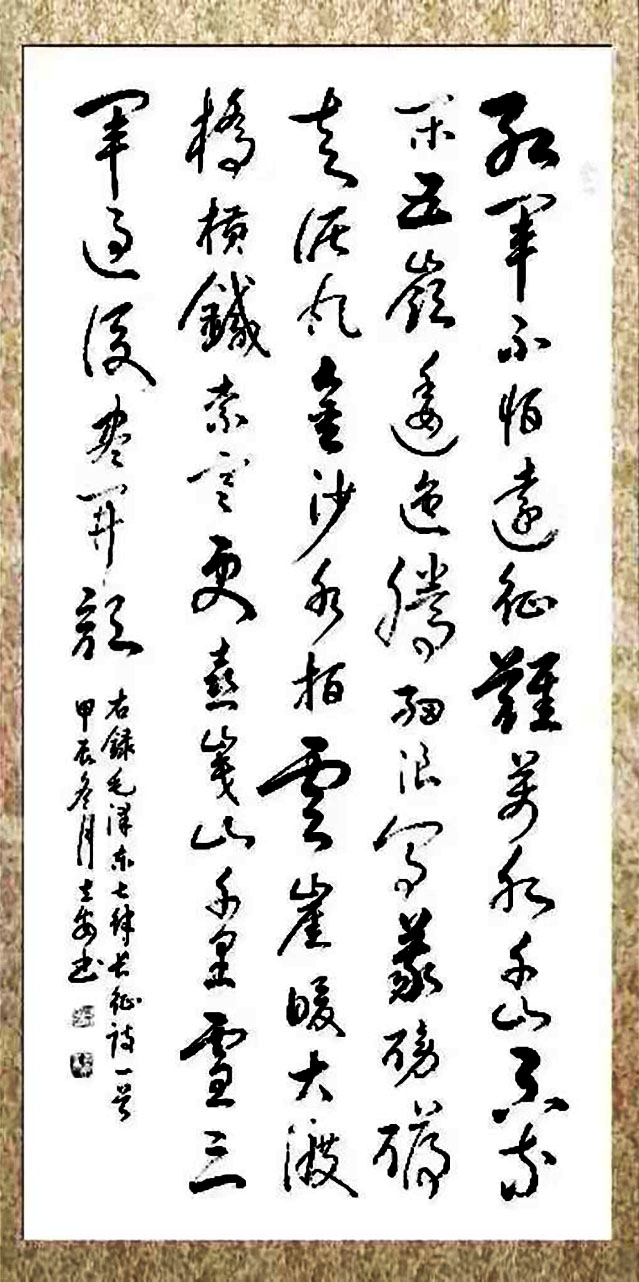 紅軍不怕遠征難萬水千山只等
閑五嶺逶迤騰細浪烏蒙磅礴
走泥丸金沙水拍雲崖暖大渡
橋橫鐵索寒更喜岷山千里雪三
軍過後盡開顏
右錄毛澤東七律長征詩一首
甲辰冬月安书